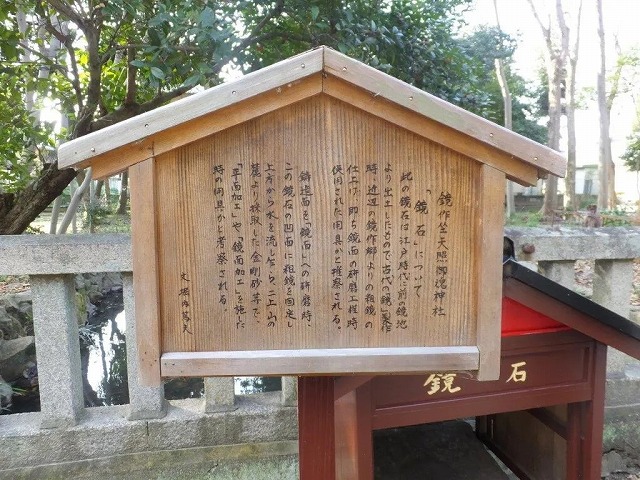 鏡作坐天照御魂神社
「鏡石」について
此の鏡石は江戸時代に前の鏡池
より出土したもので古代の鏡製作
時、近辺の鏡作郷よりの粗鏡の
仕上げ、即ち鏡面の研磨工程時
使用された用具かと推察される。
鋳造面を「鏡面」への研磨時、
この鏡石の凹面に粗鏡を固定し
上方から水を流しながら、二上山の
麓より採取した金剛砂等で、
「平面加工」や、「鏡面加工」を施した
時の用具かと考察される。
鏡石